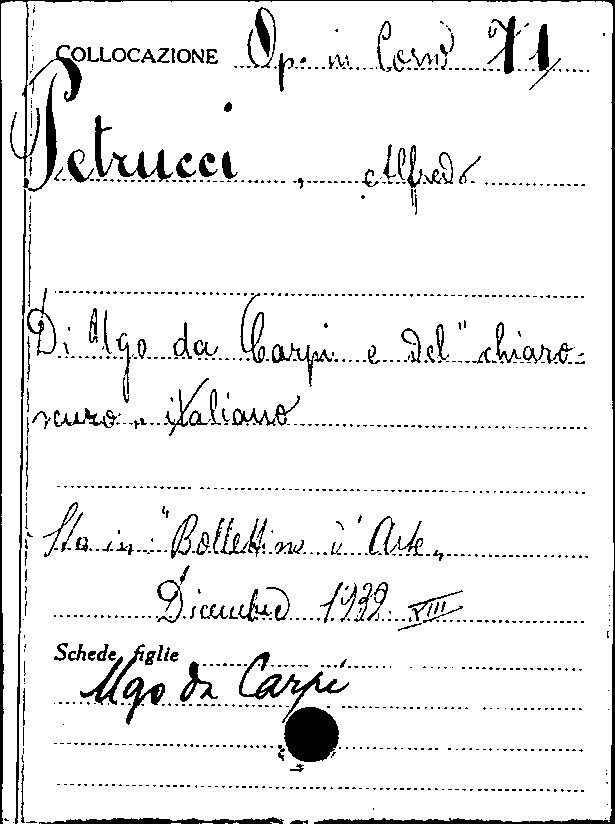 COLLOCAZIONE Op. in Corso 71
Petrucci, Alfredo
Di Ugo da Carpi e del "chiaro-
scuro" italiano
Sta in "Bollettino d'Arte"
Dicembre 1932 XIII
Schede figlie
Ugo da Carpi